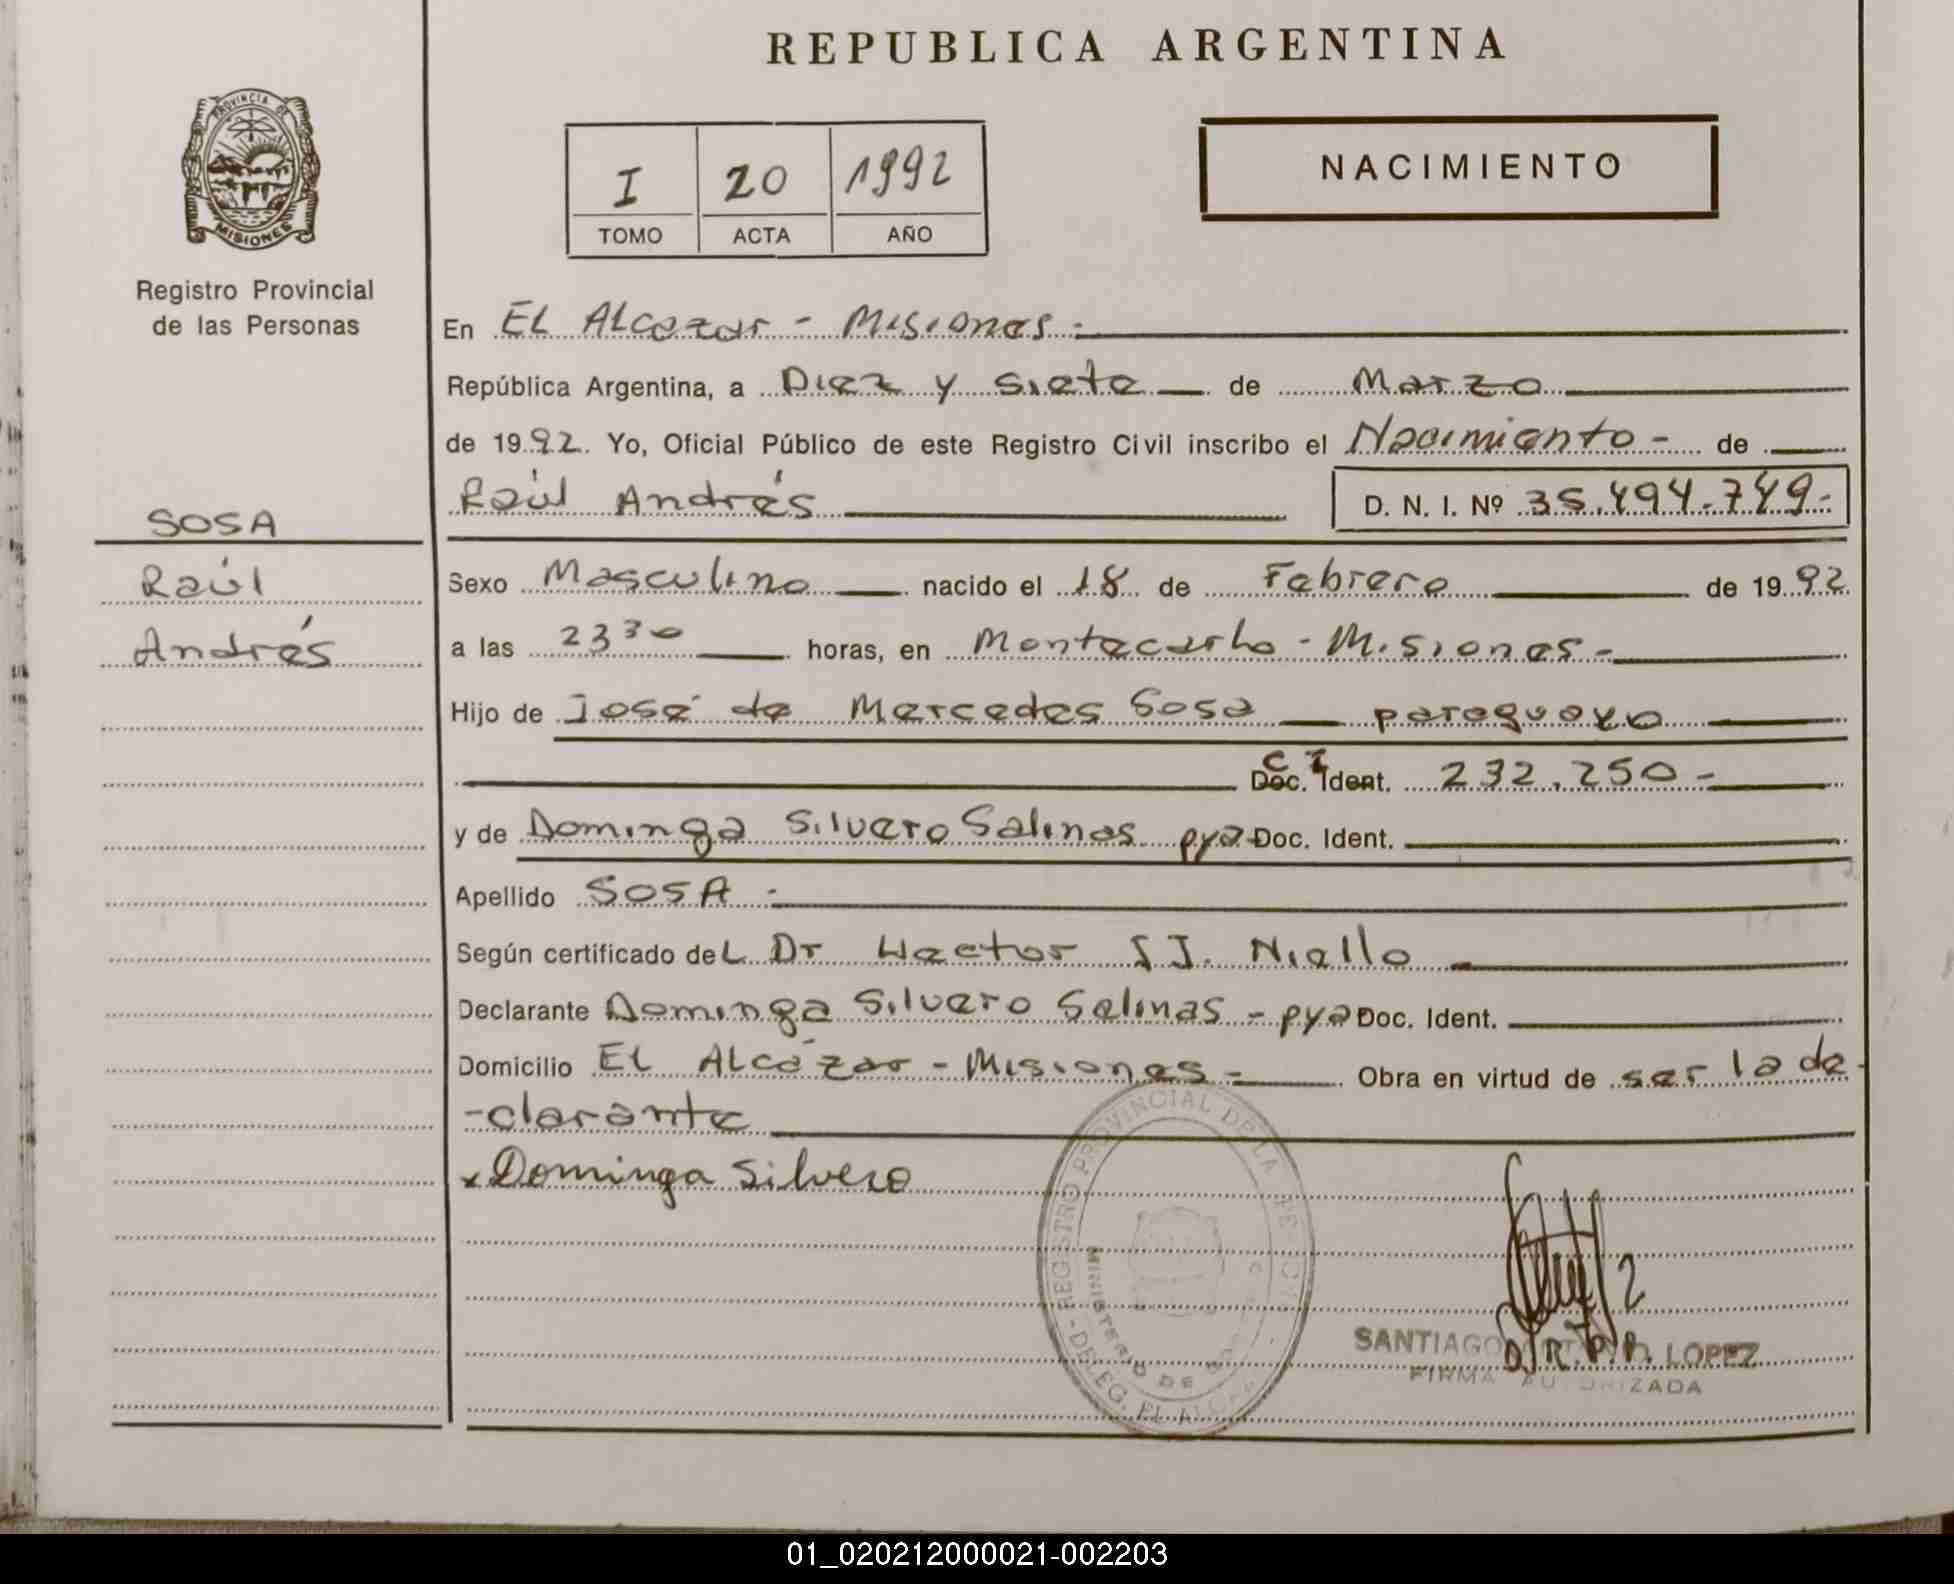 REPUBLICA ARGENTINA
PROVINCIA DE
MISIONES
Registro Provincial
de las Personas
I 20 1992
TOMO ACTA AÑO
NACIMIENTO
En EL ALcazar - Misiones -
República Argentina, a Diez y siete de Marzo
de 1992. Yo, Oficial Público de este Registro Civil inscribo el Nacimiento - de
Raúl Andrés D. N. I. Nº 35.494.749-
SOSA
Raúl
Andrés
Sexo Masculino nacido el 18 de Febrero de 1992
a las 23 30 horas, en Montecarlo - Misiones -
Hijo de José de Mercedes Sosa paraguayo
C I
Doc. Ident. 232.250 -
y de Dominga Silvero Salinas pya Doc. Ident.
Apellido SOSA -
Según certificado deL Dr Hector J. Niello
Declarante Dominga Silvero Salinas - pya Doc. Ident.
Domicilio EL ALcázar - Misiones - Obra en virtud de ser la de-
-clarante
x Dominga Silvero
REGISTRO PROVINCIAL DE LA
MINISTERIO DE
DELEG. EL
SANTIAGO LOPEZ
D. R. P. P.
FIRMA AUTORIZADA
01_020212000021-002203